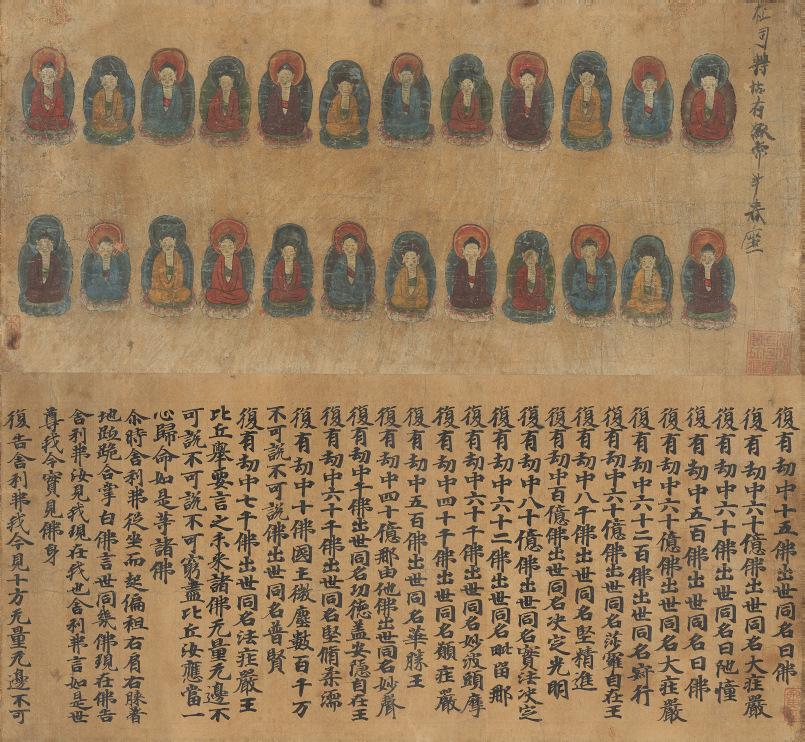 復有劫中十五佛出世同名日佛
復有劫中六十億佛出世同名大莊嚴
復有劫中六十佛出世同名地幢
復有劫中五百佛出世同名日佛
復有劫中六十億佛出世同名大莊嚴
復有劫中六十二百佛出世同名寂行
復有劫中六十億佛出世同名莎羅自在王
復有劫中八千佛出世同名堅精進
復有劫中百億佛出世同名決定光明
復有劫中八十億佛出世同名實法決定
復有劫中六十二佛出世同名毗留那
復有劫中六十千佛出世同名妙波頭摩
復有劫中四十千佛出世同名願莊嚴
復有劫中五百佛出世同名華勝王
復有劫中四十億那由他佛出世同名妙聲
復有劫中千佛出世同名功德蓋安隱自在王
復有劫中六十千佛出世同名堅脩柔濡
復有劫中十佛國土微塵數百千万
不可說不可說佛出世同名普賢
復有劫中七千佛出世同名法莊嚴王
比丘舉要言之未來諸佛无量无邊不
可說不可說不可窮盡比丘汝應當一
心歸命如是等諸佛
尒時舍利弗從坐而起偏袒右肩右膝著
地跪合掌白佛言世同幾佛現在佛告
舍利弗汝見我現在我也舍利弗言如是世
尊我今實見佛身
復告舍利弗我今見十方无量无邊不可